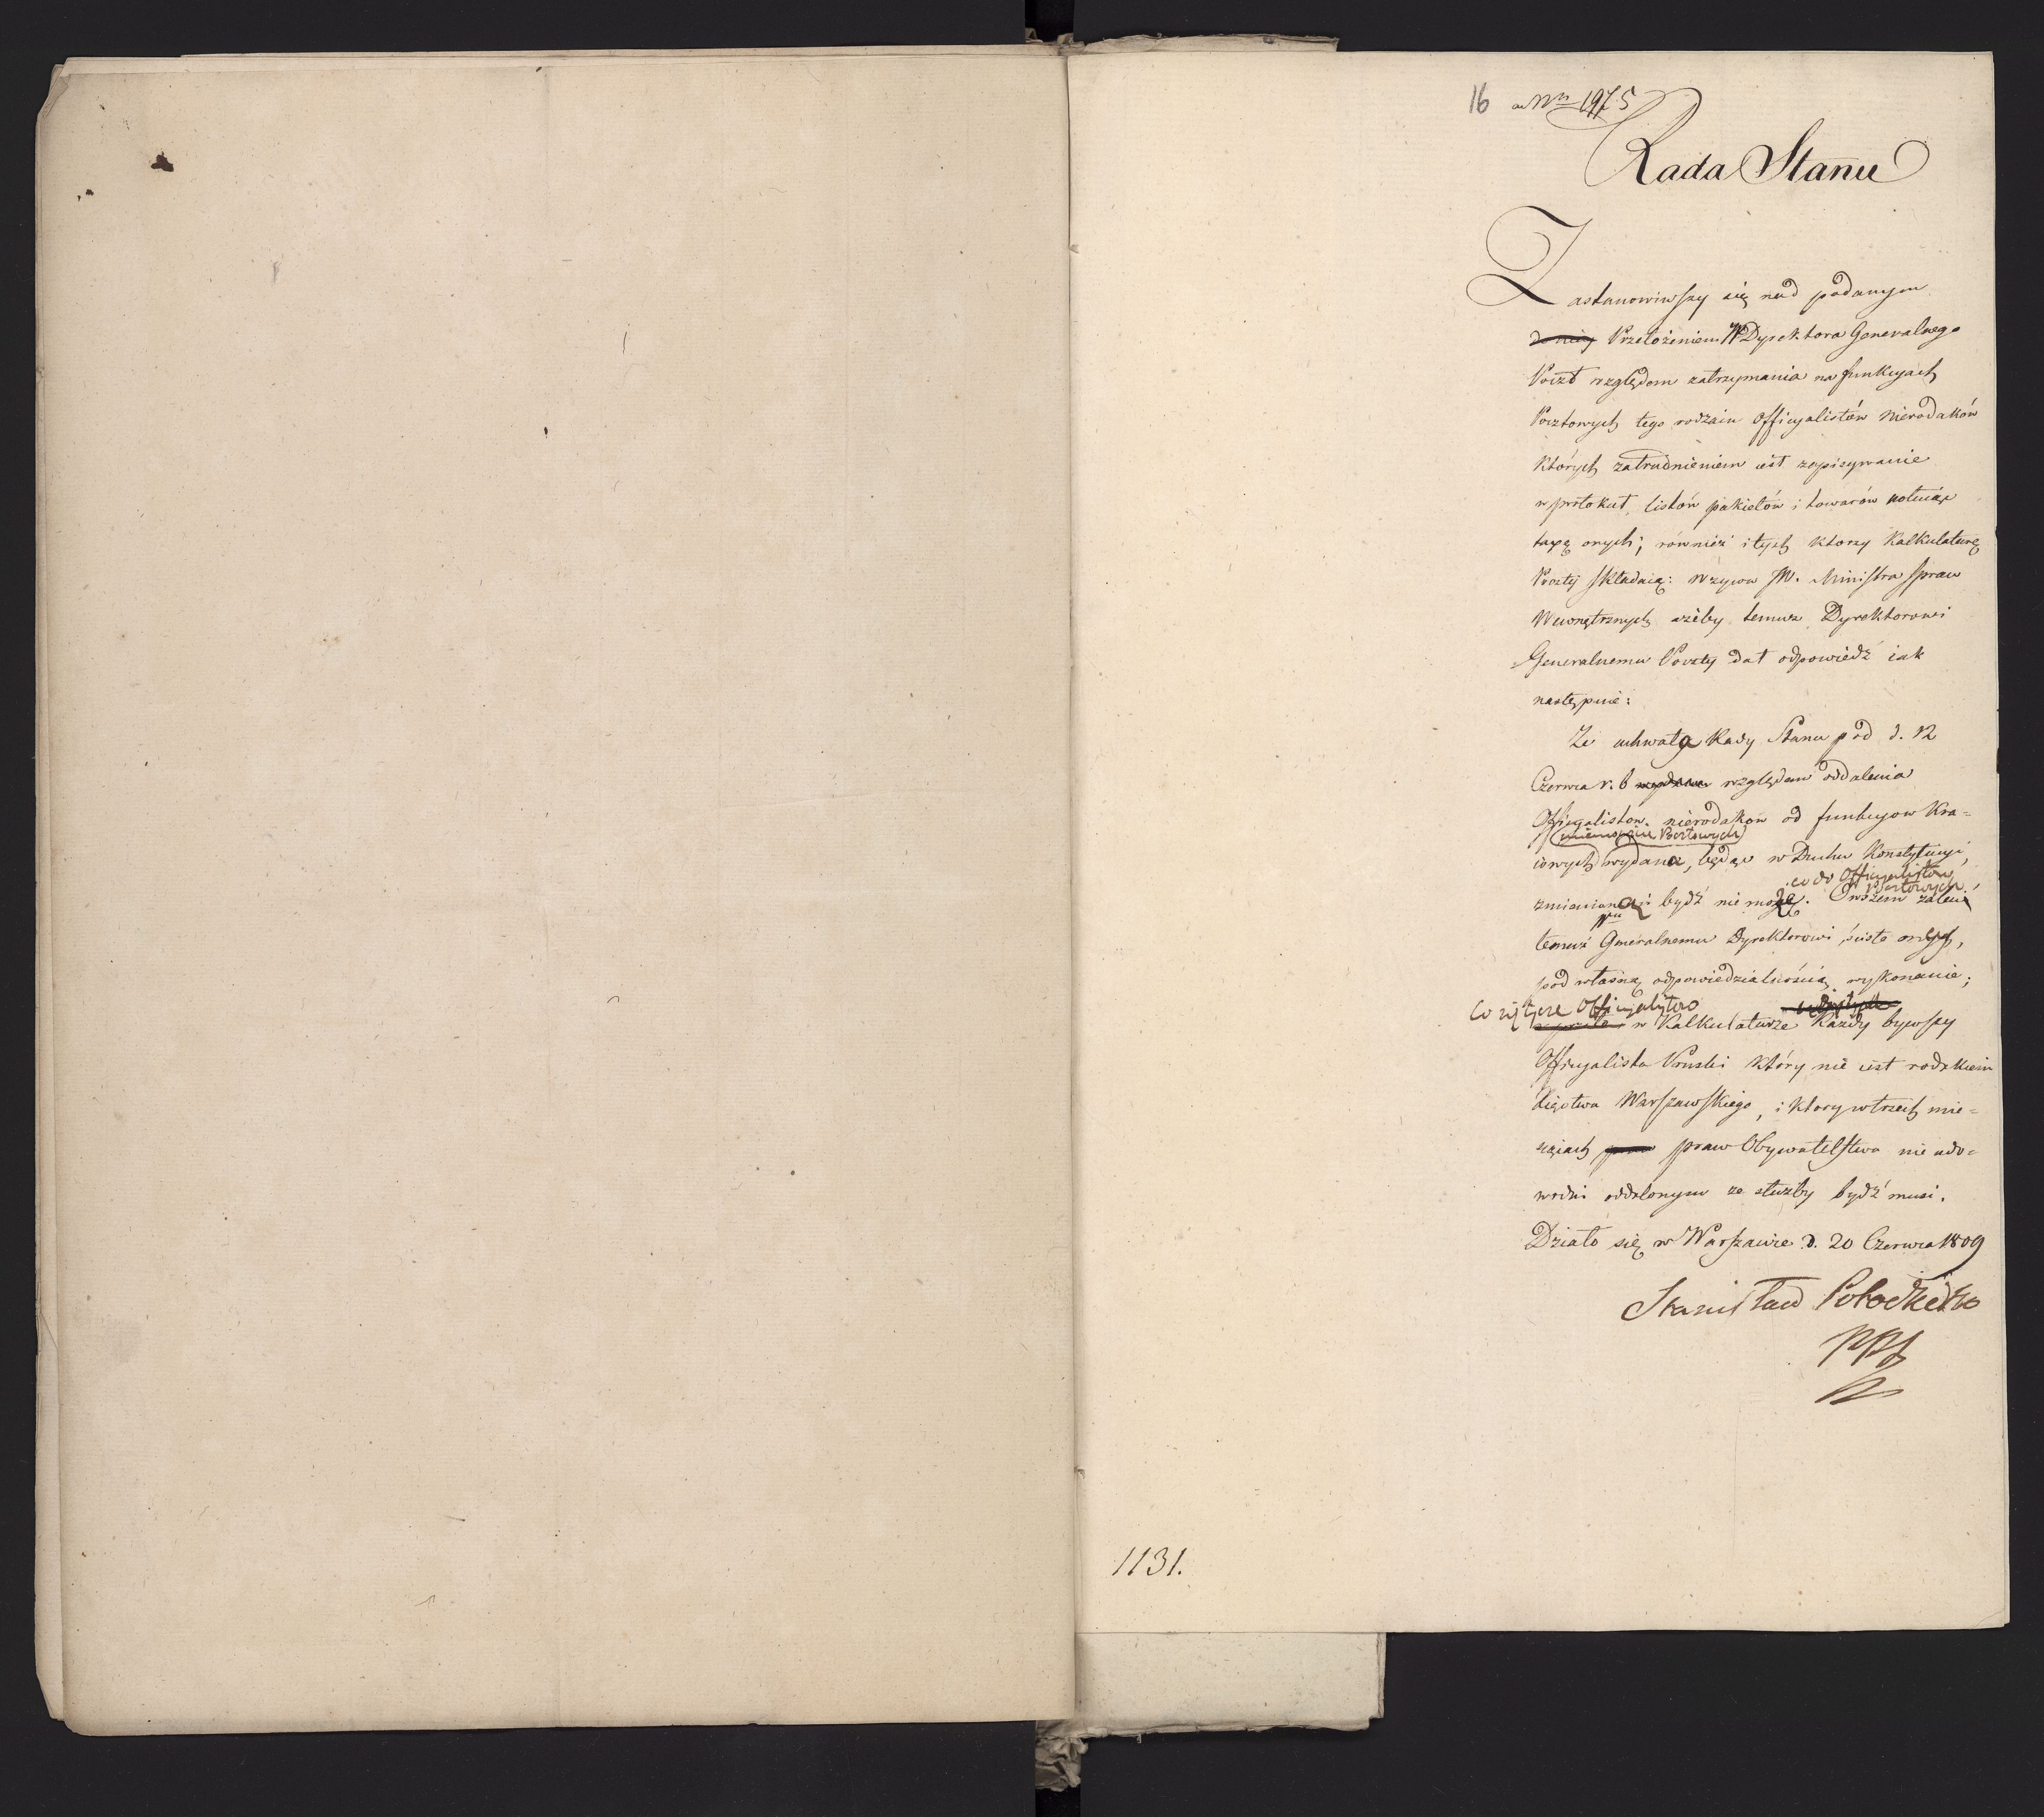 16 ad Nrm 1975
Rada Stanu
Zastanowiwszy się nad podanym
do niey Przełożeniem W Dyrektora Generalnego
Poczt względem zatrzymania na funkcyach
Pocztowych tego rodzaiu Officyalistów nierodaków
których zatrudnieniem iest zapisywanie
w protokuł listów pakietów i towarów notuiąc
taxę onych; również i tych ktorzy Kalkulaturę
Poczty składaią: wzywa JW. Ministra Spraw
Wewnętrznych ażeby temuż Dyrektorowi
Generalnemu Poczty dał odpowiedź iak
następuie:
Że uchwała Rady Stanu pod d. 12
Czerwca r. b względem oddalenia
Officyalistow nierodakow od funkcyow Kra=
mianowicie Pocztowych
iowych wydana, będąc w Duchu Konstytucyi,
co do Officyalistow
Pocztowych
zmienioną bydź nie może. Owszem zaleca
temuż Generalnemu Dyrektorowi ściste onych,
pod własną odpowiedzialnością wykonanie;
Co się tycze Officyalistow
w Kalkulaturze Każdy bywszy
Officyalista Pruski który nie iest rodakiem
Xięstwa Warszawskiego, i ktory w trzech mie=
siącach praw Obywatelstwa nie udo=
wodni oddalonym ze służby bydź musi.
Działo się w Warszawie d. 20 Czerwca 1809
Stanisław Potocki
1131.